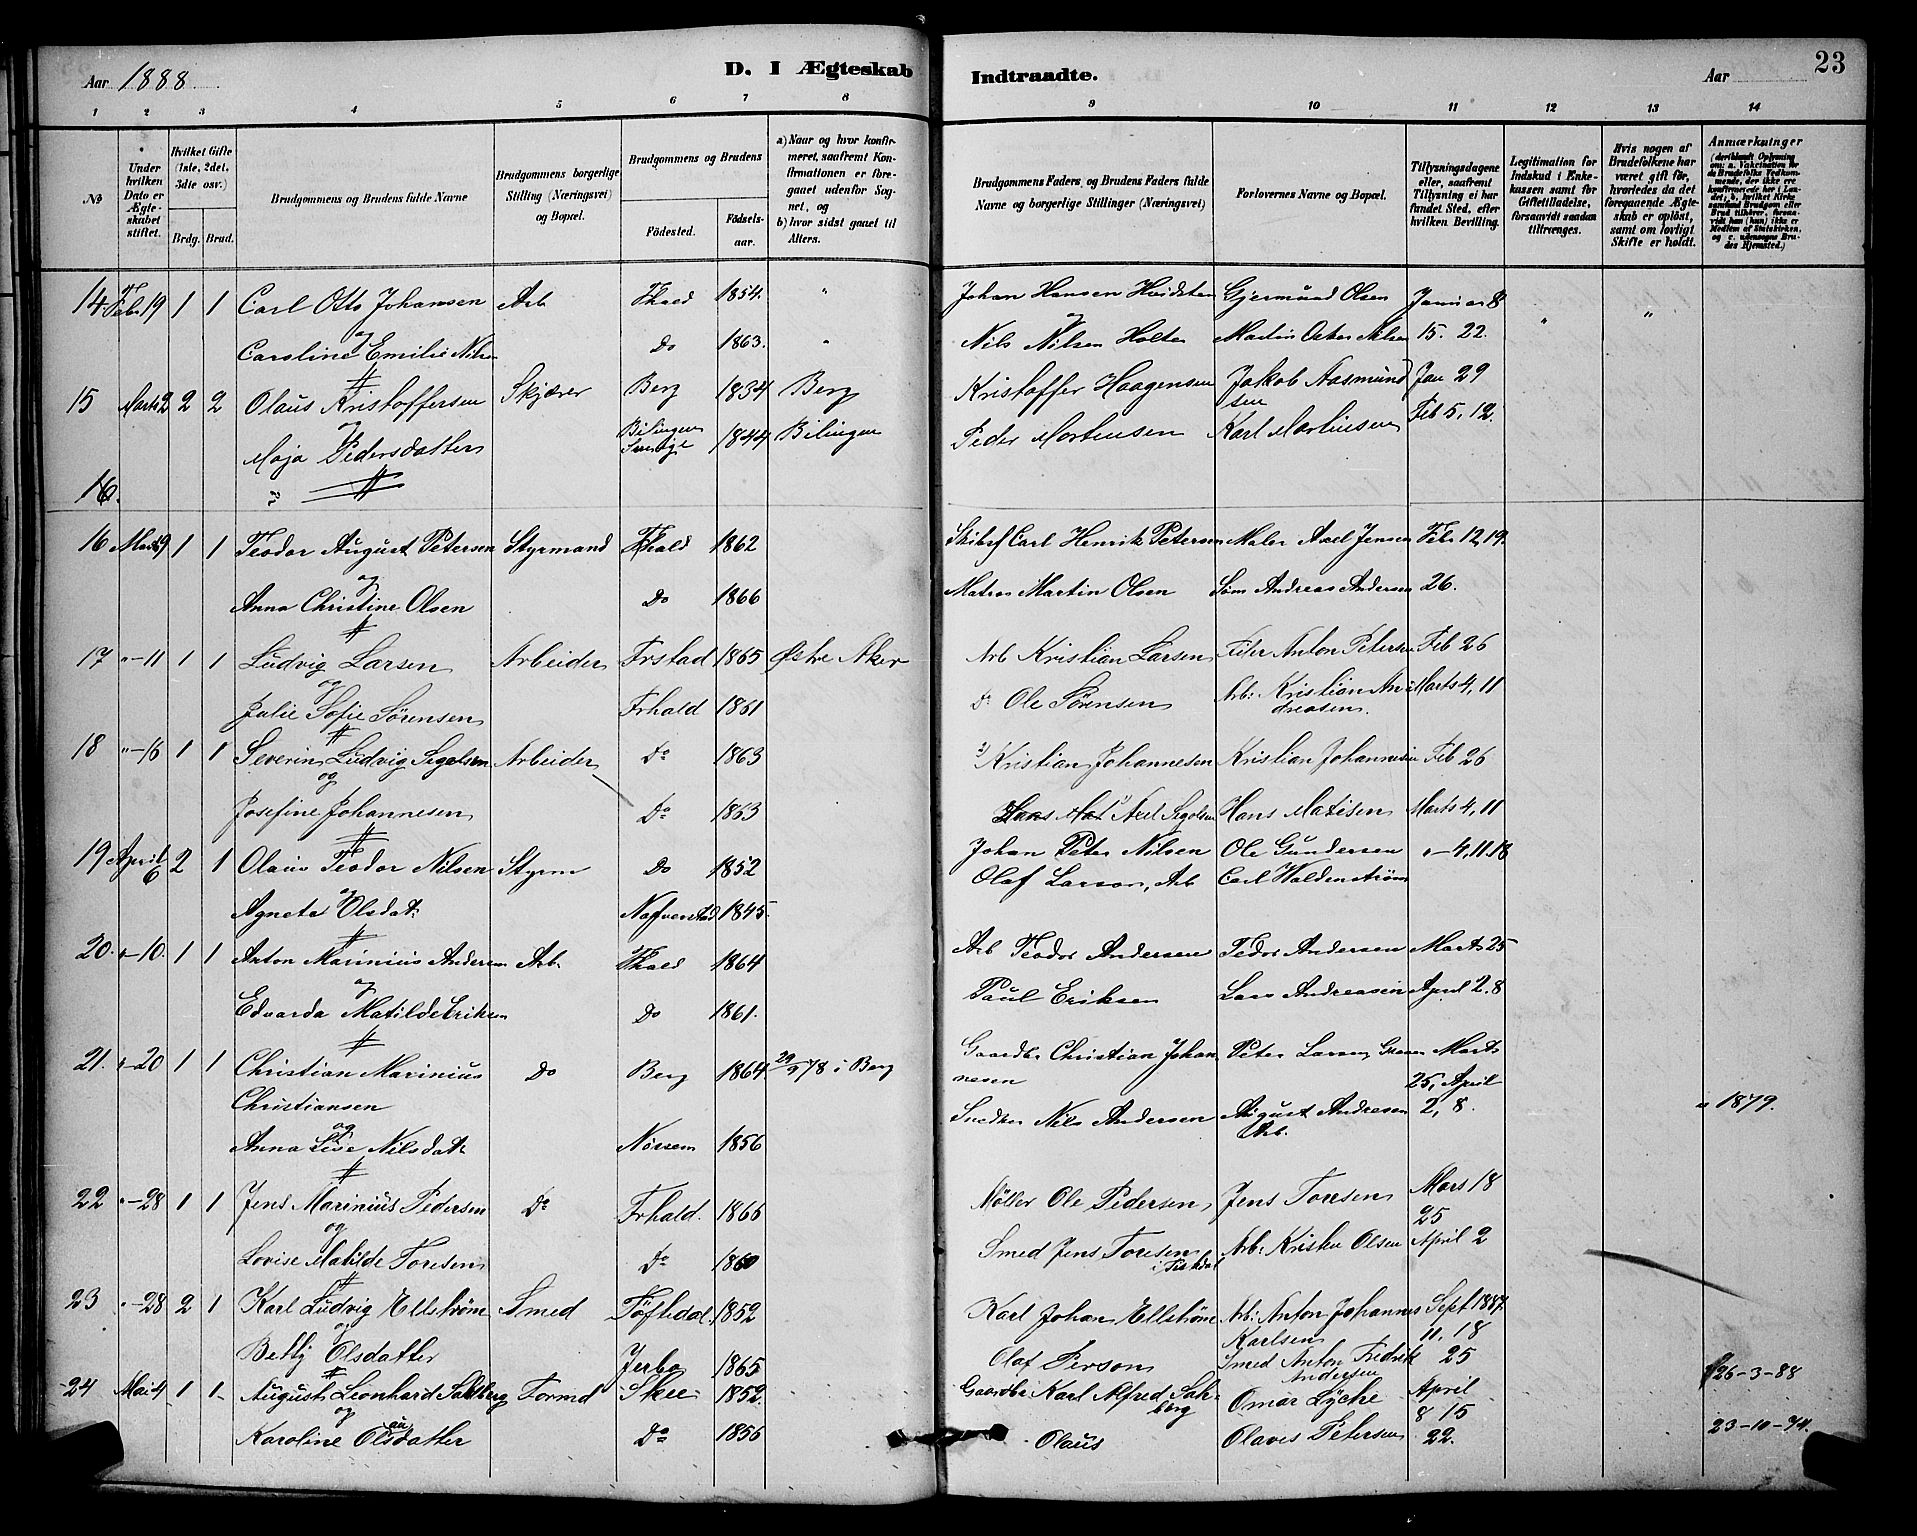 Aar 1888
D. I Ægteskab Indtraadte.
Aar 23
1 2 3 4 5 6 7 8 9 10 11 12 13 14
№
Under hvilken Dato er Ægteskabet stiftet.
Hvilket Gifte (1ste, 2det, 3die osv.)
Brdg. Brud.
Brudgommens og Brudens fulde Navne
Brudgommens borgerlige Stilling (Næringsvei) og Bopæl.
Brudgommens og Brudens
Födested.
Födselsaar.
a) Naar og hvor konfirmeret, saafremt Konfirmationen er foregaaet udenfor Sognet, og
b) hvor sidst gaaet til Alters.
Brudgommens Faders og Brudens Faders fulde Navne og borgerlige Stillinger (Næringsvei)
Forlovernes Navne og Bopæl.
Tillysningsdagene eller, saafremt Tillysning ei har fundet Sted, efter hvilken Bevilling.
Legitimation for Indskud i Enkekassen samt for Giftetilladelse, forsaavidt saadan tiltrænges.
Hvis nogen af Brudefolkene har været gift før, hvorledes da det foregaaende Ægteskab er oplöst, samt om lovligt Skifte er holdt.
Anmærkninger
14 Feb 19 1 1 Carl Otto Johansen Arb Fhald 1854. " Johan Hansen Gjermund Olsen Januar 8
og
Caroline Emilie Nilsen Do 1863. " Nils Nilsen Holte Martin Oskar Nilsen 15. 22. " "
15 Marts 2 2 2 Olaus Kristoffersen Skjærer Berg 1834 Berg Kristoffer Haagensen Jakob Aasmundsen Jan 29
og
Maja Pedersdatter 1844 Peder Mortensen Karl Martinsen Feb 5, 12.
16.
16 Marts 9 1 1 Teodor August Petersen Styrmand Fhald 1862 Skibsf Carl Henrik Petersen Maler Axel Jensen Feb. 12, 19.
og
Anna Christine Olsen Do 1866 Matros Martin Olsen Andreas Andersen 26.
17 "-11 1 1 Ludvig Larsen Arbeider Frstad 1865 Østre Aker Arb Kristian Larsen Anton Petersen Feb 26
og
Julie Sofie Sørensen Frhald 1861 Do Ole Sørensen Arb: Kristian Andreasen Marts 4, 11
18 "-16 1 1 Severin Ludvig Segelsen Arbeider Do 1863 2) Kristian Johannesen Kristian Johannesen Feb 26
og
Josefine Johannesen Do 1863 Axel Segelsen Hans Matisen Marts 4, 11
19 April 6 2 1 Olaus Teodor Nilsen Styrm Do 1852 Johan Peter Nilsen Ole Gundersen "- 4, 11. 18
Agnete Olsdat. 1845. Olaf Larson, Arb Carl Waldenstrøm
20. "-10. 1 1 Anton Marinius Andersen Arb. Fhald 1864 Arb Teodor Andersen Tedor Andersen Marts 25
og
Edvarda Matilde Eriksen Do 1861. Paul Eriksen Lars Andreasen April 2. 8
21. "-20 1 1 Christian Marinius Christiansen Do Berg 1864 78 i Berg Gaardbr Christian Johannesen Peter Larsen Marts 25, April
og
Anna Lise Nilsdat. 1856 Snedker Nils Andersen August Andresen Arb. 2, 8. " 1879.
22 "-28 1 1 Jens Marinius Pedersen Do Frhald. 1866 Møller Ole Pedersen Jens Toresen Mars 18
25
og
Lovise Matilde Toresen Do 1860 Smed Jens Toresen i Tistedal Arb: Olsen April 2
23 "-28 2 1 Karl Ludvig Ellstrøm Smed Töftedal. 1852 Karl Johan Ellstrøm Arb: Anton Johannes Karlsen Sept 1887.
11. 18
og
Betty Olsdatter Jerbo 1865 Olaf Person Smed Anton Fredrik Andersen 25
24 Mai 4 1 1 August Leonhard Sahlberg Formd Skee 1852. Gaardbr Karl Alfred Sahlberg Omar Lyche April 26-3-88
og 8 15
Karoline Olausdatter Do 1856 Olaus Olaves Petersen 22. 23-10-74.